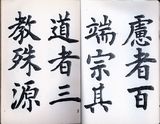 慮者百
端宗其
道者三
教殊源